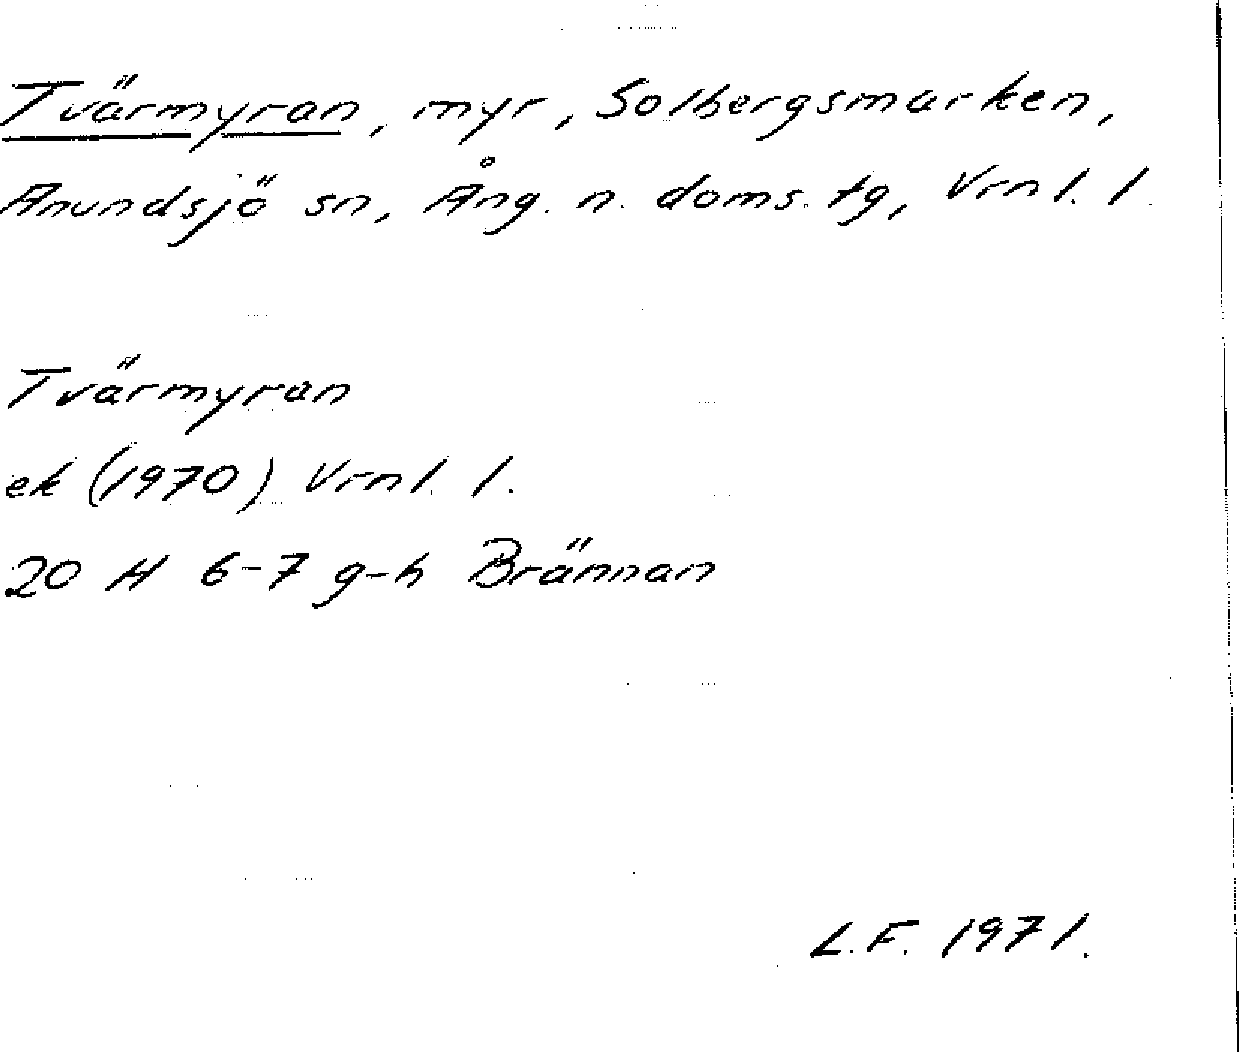 Tvärmyran, myr, Solbergsmarken,
Anundsjö sn, Ång. n. doms. tg, Vrnl. l.
Tvärmyran
ek (1970) Vrnl. l.
20 H 6-7 g-h Brännan
L.F. 1971.